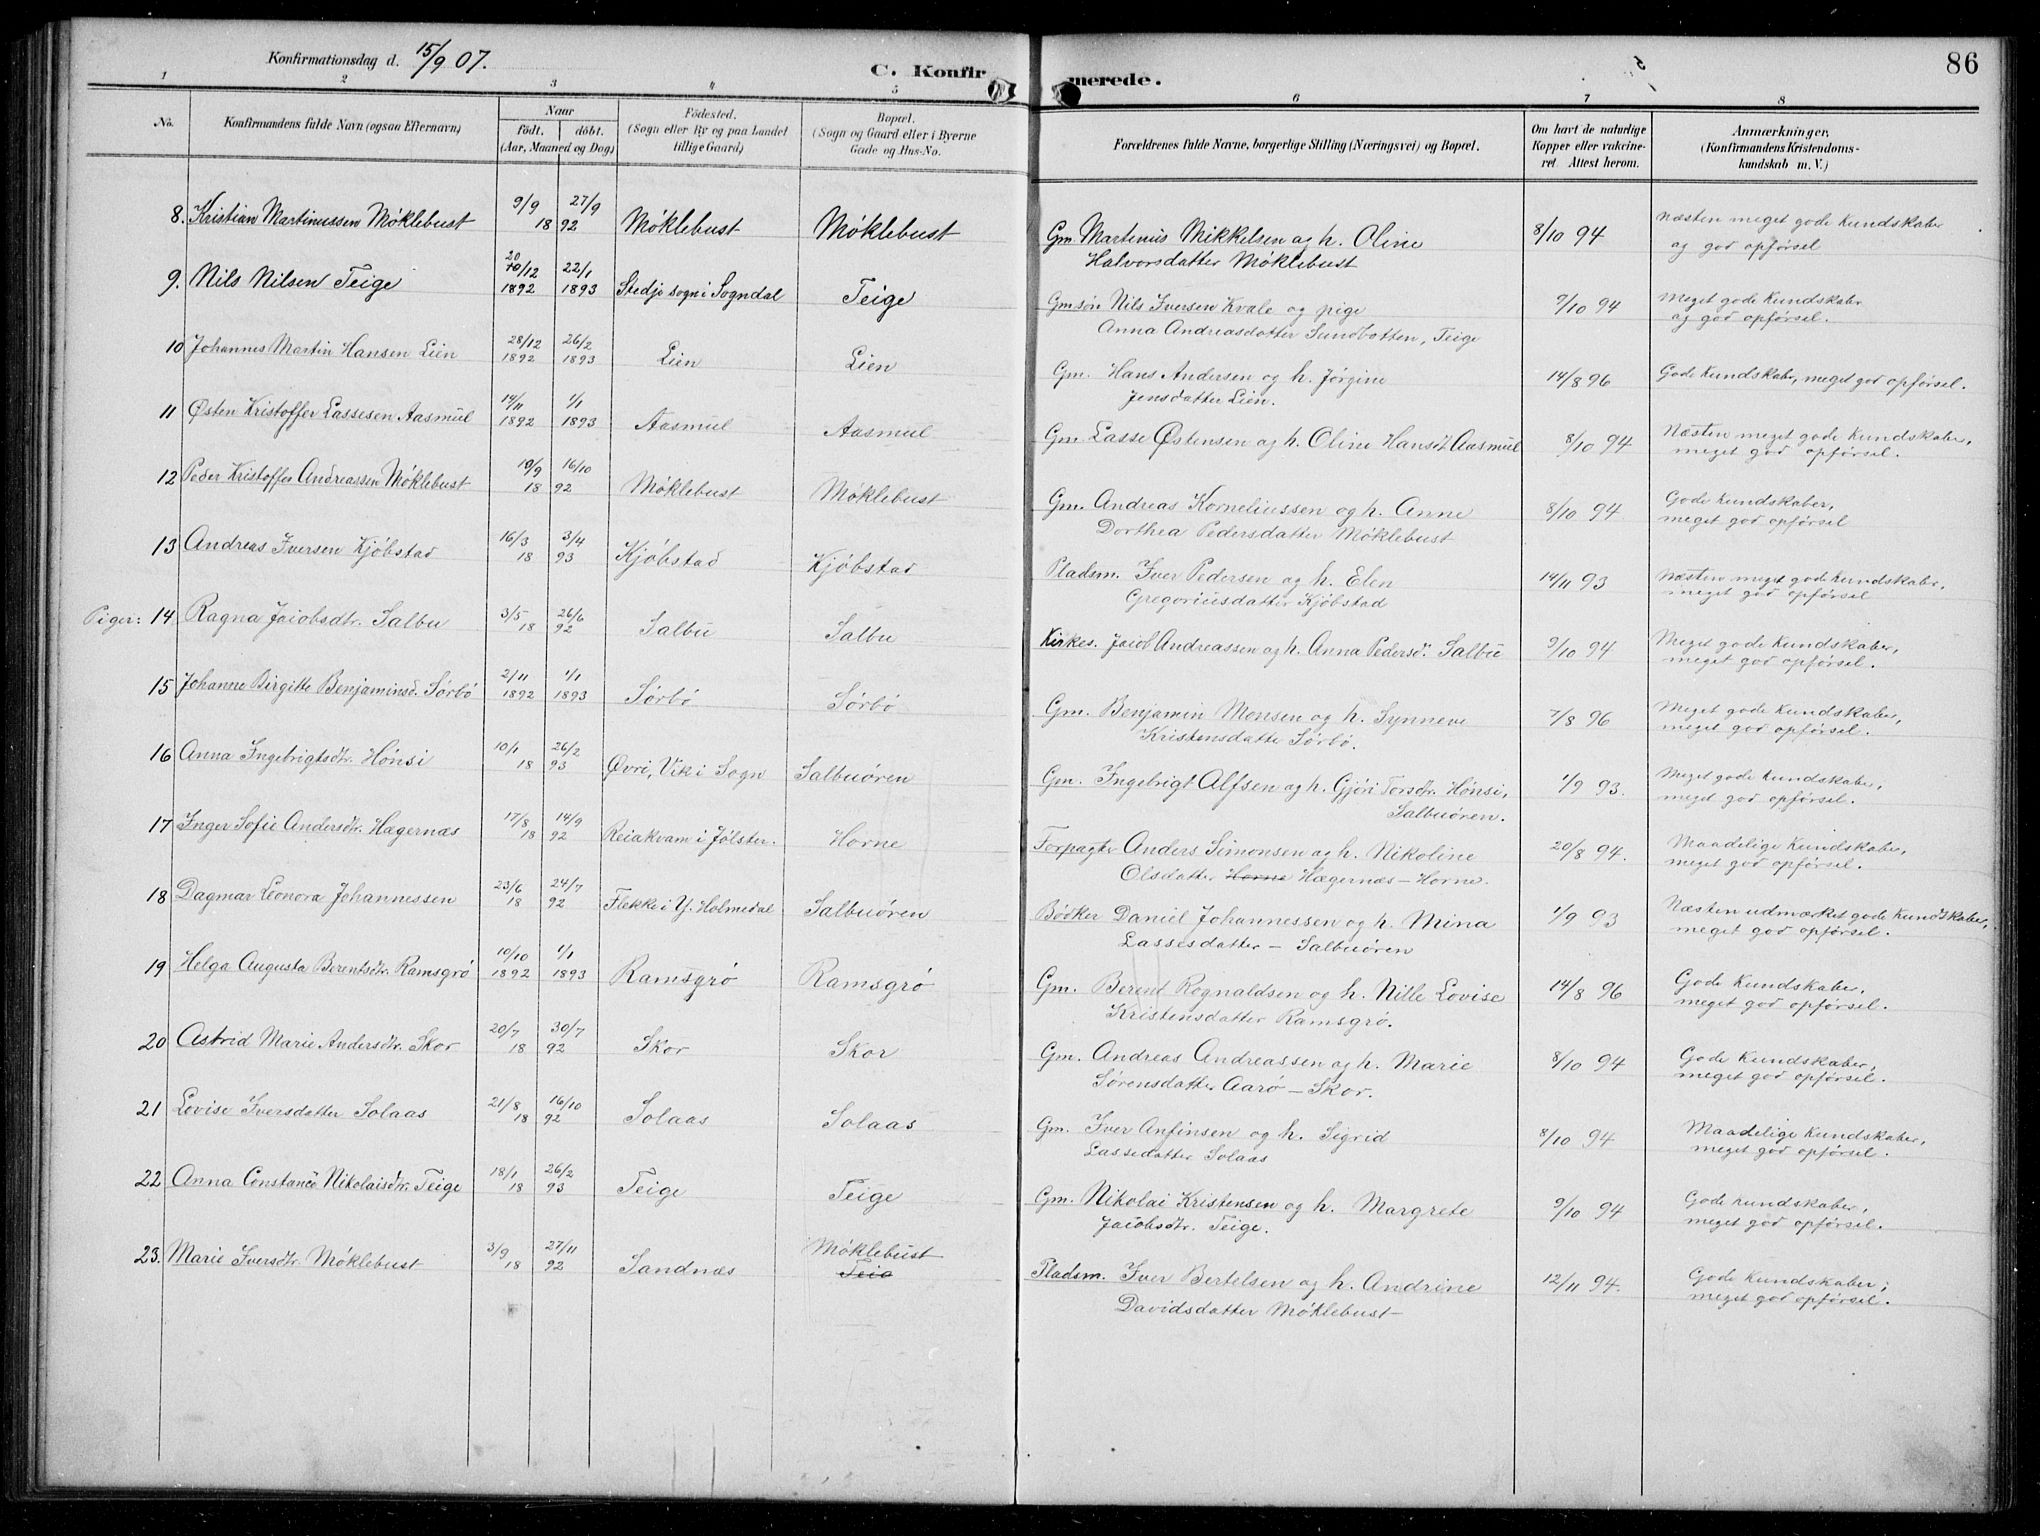 Konfirmationsdag d. 15/9 07.
C. Konfirmerede.
86
1 2 3 4 5 6 7 8
No.
Konfirmandens fulde Navn (ogsaa Efternavn)
Naar
født. døbt.
(Aar, Maaned og Dag)
Fødested.
(Sogn eller By og paa Landet
tillige Gaard)
Bopæl.
(Sogn og Gaard eller i Byerne
Gade og Hus-No.
Forældrenes fulde Navne, borgerlige Stilling (Næringsvei) og Bopæl.
Om havt de naturlige
Kopper eller vakcine-
ret Attest herom.
Anmærkninger,
(Konfirmandens Kristendoms-
kundskab m. V.)
8. Kristian Martinussen Møklebust 9/9 27/9 18 92 Møklebust Møklebust Gm. Martinus Mikkelsen og h. Oline 8/10 94 Næsten meget gode Kundskaber
Halvorsdatter Møklebust og god opførsel
9. Nils Nilsen Teige 20 10/12 1892 22/1 1893 Stedje sogn i Sogndal Teige Gmsøn Nils Iversen Kvale og pige 9/10 94 Meget gode Kundskaber
Anna Andreasdatter Sundbotten, Teige og god opførsel.
10 Johannes Martin Hansen Lien 28/12 1892 26/2 1893 Lien Lien Gm. Hans Andersen og h. Jørgine 14/8 96 Gode Kundskaber, meget god opførsel.
Jensdatter Lien.
11 Østen Kristoffer Lassesen Aasmul 14/11 1892 1/1 1893 Aasmul Aasmul Gm. Lasse Østensen og h. Oline Hansdt. Aasmul 8/10 94 Næsten meget gode Kundskaber,
meget god opførsel.
12 Peder Kristoffer Andreassen Møklebust 10/9 16/10 18 92 Møklebust Møklebust Gm. Andreas Korneliussen og h. Anne 8/10 94 Gode Kundskaber,
Dorthea Pedersdatter Møklebust meget god opførsel
13 Andreas Iversen Kjøbstad 16/3 3/4 18 93 Kjøbstad Kjøbstad Pladsm. Iver Pedersen og h. Elen 14/11 93 Næsten meget gode Kundskaber,
Gregoriusdatter Kjøbstad meget god opførsel
Piger: 14 Ragna Jacobsdtr. Salbu 3/5 26/6 18 92 Salbu Salbu Kirkes. Jacob Andreassen og h. Anna Pedersd. Salbu 9/10 94 Meget gode Kundskaber,
meget god opførsel.
15 Johanne Birgitte Benjaminsd. Sørbø 2/11 1892 1/1 1893 Sørbø Sørbø Gm. Benjamin Monsen og h. Synneve 7/8 96 Meget gode Kundskaber,
Kristensdatter Sørbø. meget god opførsel.
16 Anna Ingebrigtsdtr. Hønsi 10/1 26/2 18 93 Øvri, Vik i Sogn Salbuøren Gm. Ingebrigt Alfsen og h. Gjøri Torsdtr. Hønsi, 1/9 93. Meget gode Kundskaber,
Salbuøren. meget god opførsel.
17 Inger Sofie Andersdtr. Hægernæs 17/8 14/9 18 92 Reiakvam i Jølster. Horne Forpagter Anders Simonsen og h. Nikoline 20/8 94. Maadelige Kundskaber,
Olsdatter Horne Hægernæs - Horne. meget god opførsel.
18 Dagmar Leonora Johannessen 23/6 24/7 18 92 Flekke i Y. Holmedal Salbuøren Bødker Daniel Johannessen og h. Mina 1/9 93 Næsten udmærket gode Kundskaber,
Lassesdatter - Salbuøren meget god opførsel.
19 Helga Augusta Berentsdtr. Ramsgrø 10/10 1892 1/1 1893 Ramsgrø Ramsgrø Gm. Berent Rognaldsen og h. Nille Lovise 14/8 96 Gode Kundskaber,
Kristensdatter Ramsgrø. meget god opførsel.
20 Astrid Marie Andersdtr. Skor 20/7 30/7 18 92 Skor Skor Gm. Andreas Andreassen og h. Marie 8/10 94 Gode Kundskaber,
Sørensdatter Aarø - Skor. meget god opførsel.
21 Lovise Iversdatter Solaas 21/8 16/10 18 92 Solaas Solaas Gm. Iver Anfinsen og h. Sigrid 8/10 94 Maadelige Kundskaber,
Lassedatter Solaas meget god opførsel.
22 Anna Constance Nikolaisdtr. Teige 18/1 26/2 18 93 Teige Teige Gm. Nikolai Kristensen og h. Margrete 9/10 94 Gode Kundskaber,
Jacobsdtr. Teige. meget god opførsel.
23. Marie Iversdtr. Møklebust 3/9 27/11 18 92 Sandnæs Møklebust Teig Pladsm. Iver Bertelsen og h. Andrine 12/11 94. Gode Kundskaber,
Davidsdatter Møklebust - meget god opførsel.